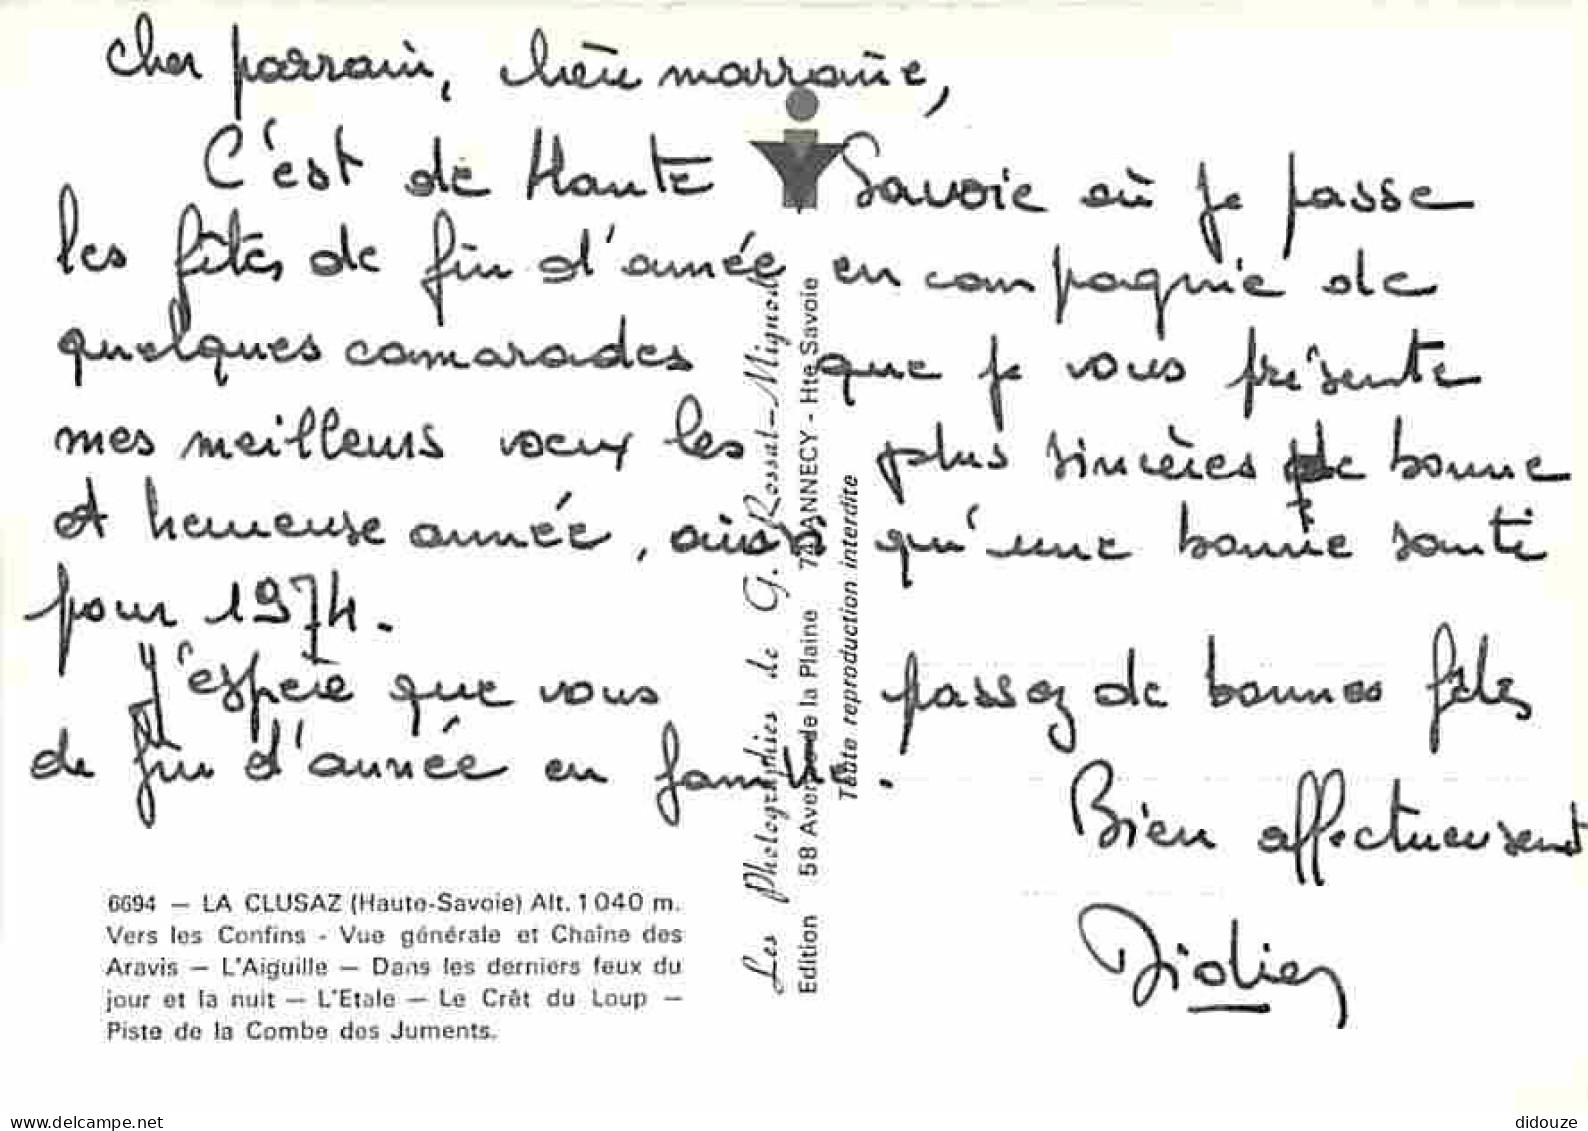 Cher parrain, chère marraine,
C'est de Haute Savoie où je passe
les fêtes de fin d'année en compagnie de
quelques camarades que je vous présente
mes meilleurs voeux les plus sincères de bonne
et heureuse année, aussi qu'une bonne santé
pour 1974.
J'espère que vous passez de bonnes fêtes
de fin d'année en famille.
Bien affectueusement
Didier
6694 — LA CLUSAZ (Haute-Savoie) Alt. 1 040 m.
Vers les Confins - Vue générale et Chaîne des
Aravis — L'Aiguille — Dans les derniers feux du
jour et la nuit — L'Etale — Le Crêt du Loup —
Piste de la Combe des Juments.
Les Photographies de G. Rossat-Mignod
Edition 58 Avenue de la Plaine 74-ANNECY - Hte Savoie
Toute reproduction interdite
www.delcampe.net
didouze